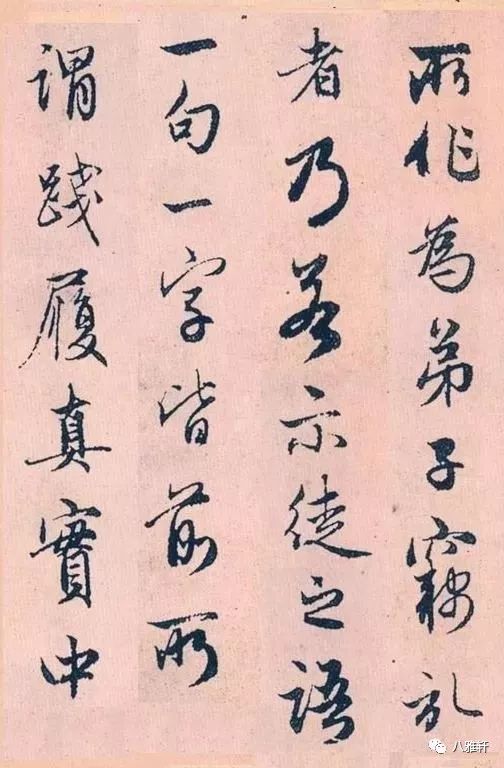 所作為弟子竊亂
者乃若示徒之語
一句一字皆前所
謂踐履真實中
八雅轩